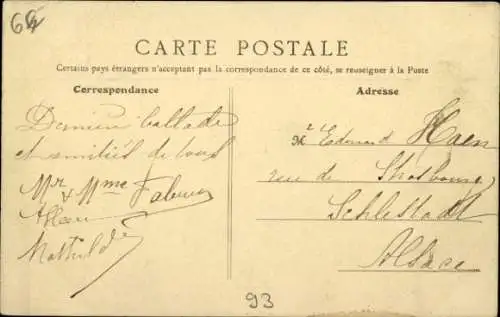 64
CARTE POSTALE
Certains pays étrangers n'acceptent pas la correspondance de ce côté, se renseigner à la Poste
Correspondance
Adresse
Dernière ballade
et amitiés de tous
Mr & Mme
Mathilde
Mr Edouard Haen
rue de Strasbourg
Schlestadt
Alsace
93